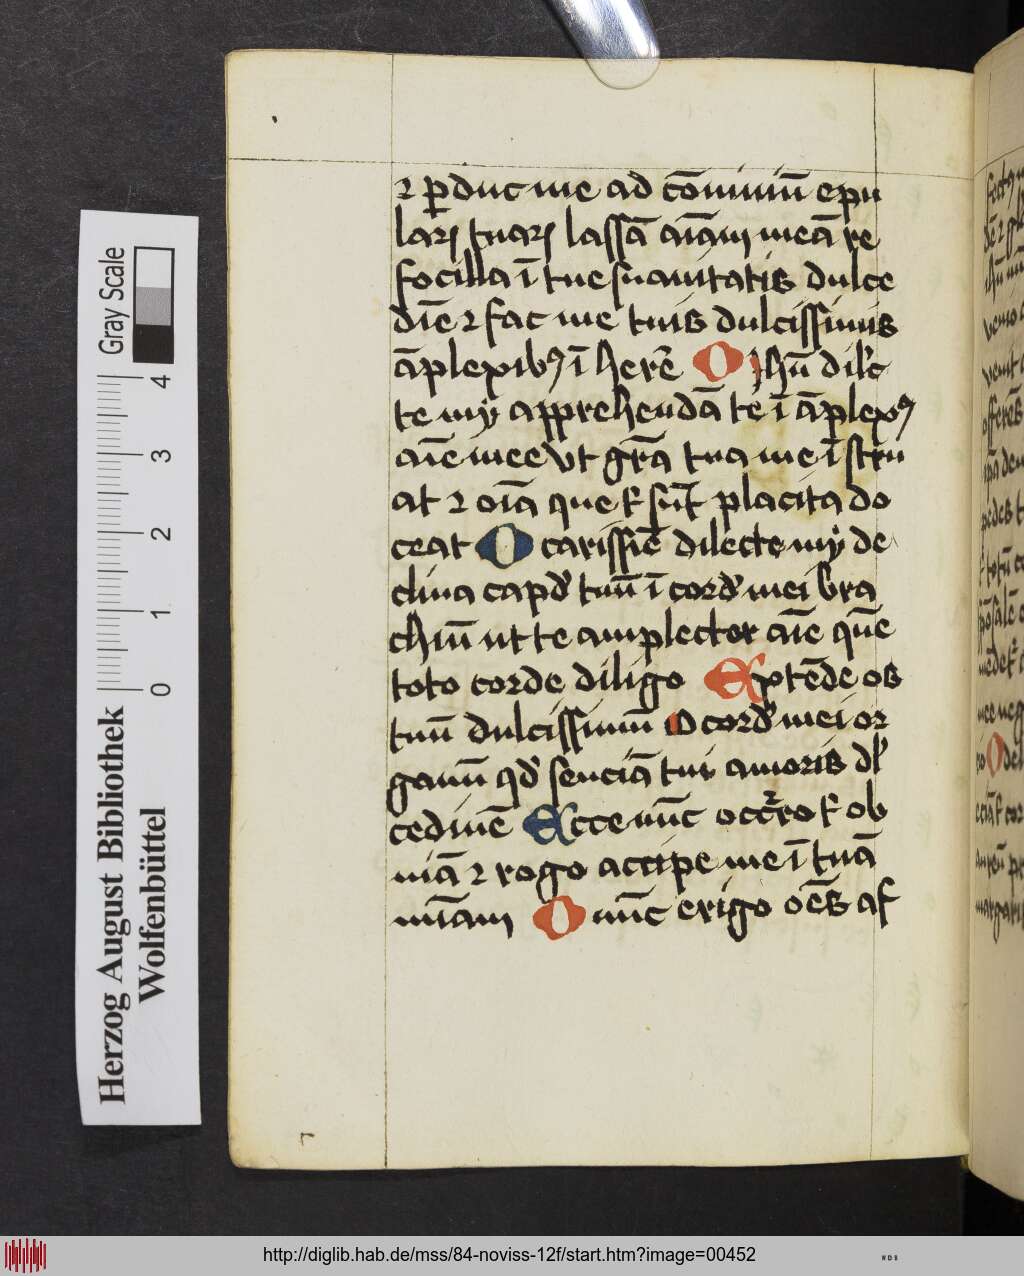 ⁊ ꝑduc me ad cōuiuiū epu
larꝝ tuarꝝ lassā aīam meā re
focilla ī tue suauitatis dulce
dīe ⁊ fac me tuis dulcissimis
āplexibꝰ ī herē O ihū dilc̄
te my apprehendā te ī āplexꝰ
aīe mee vt gr̄a tua me īstru
at ⁊ oīa que t̄ sūt placita do
ceat O carissīe dilecte my de
clina capđ tuū ī corđ mei bra
chiū ut te amplecter aīe quē
toto corde diligo Extēde os
tuū dulcissimū O corđ mei or
ganū qđ senciā tui amoris dl̄
cedinē Ecce nūc occr̄ro t̄ ob
uiā ⁊ rogo accipe me ī tuā
mīam O nūc erigo oēs af
Herzog August Bibliothek
Wolfenbüttel
Gray Scale
0 1 2 3 4
http://diglib.hab.de/mss/84-noviss-12f/start.htm?image=00452